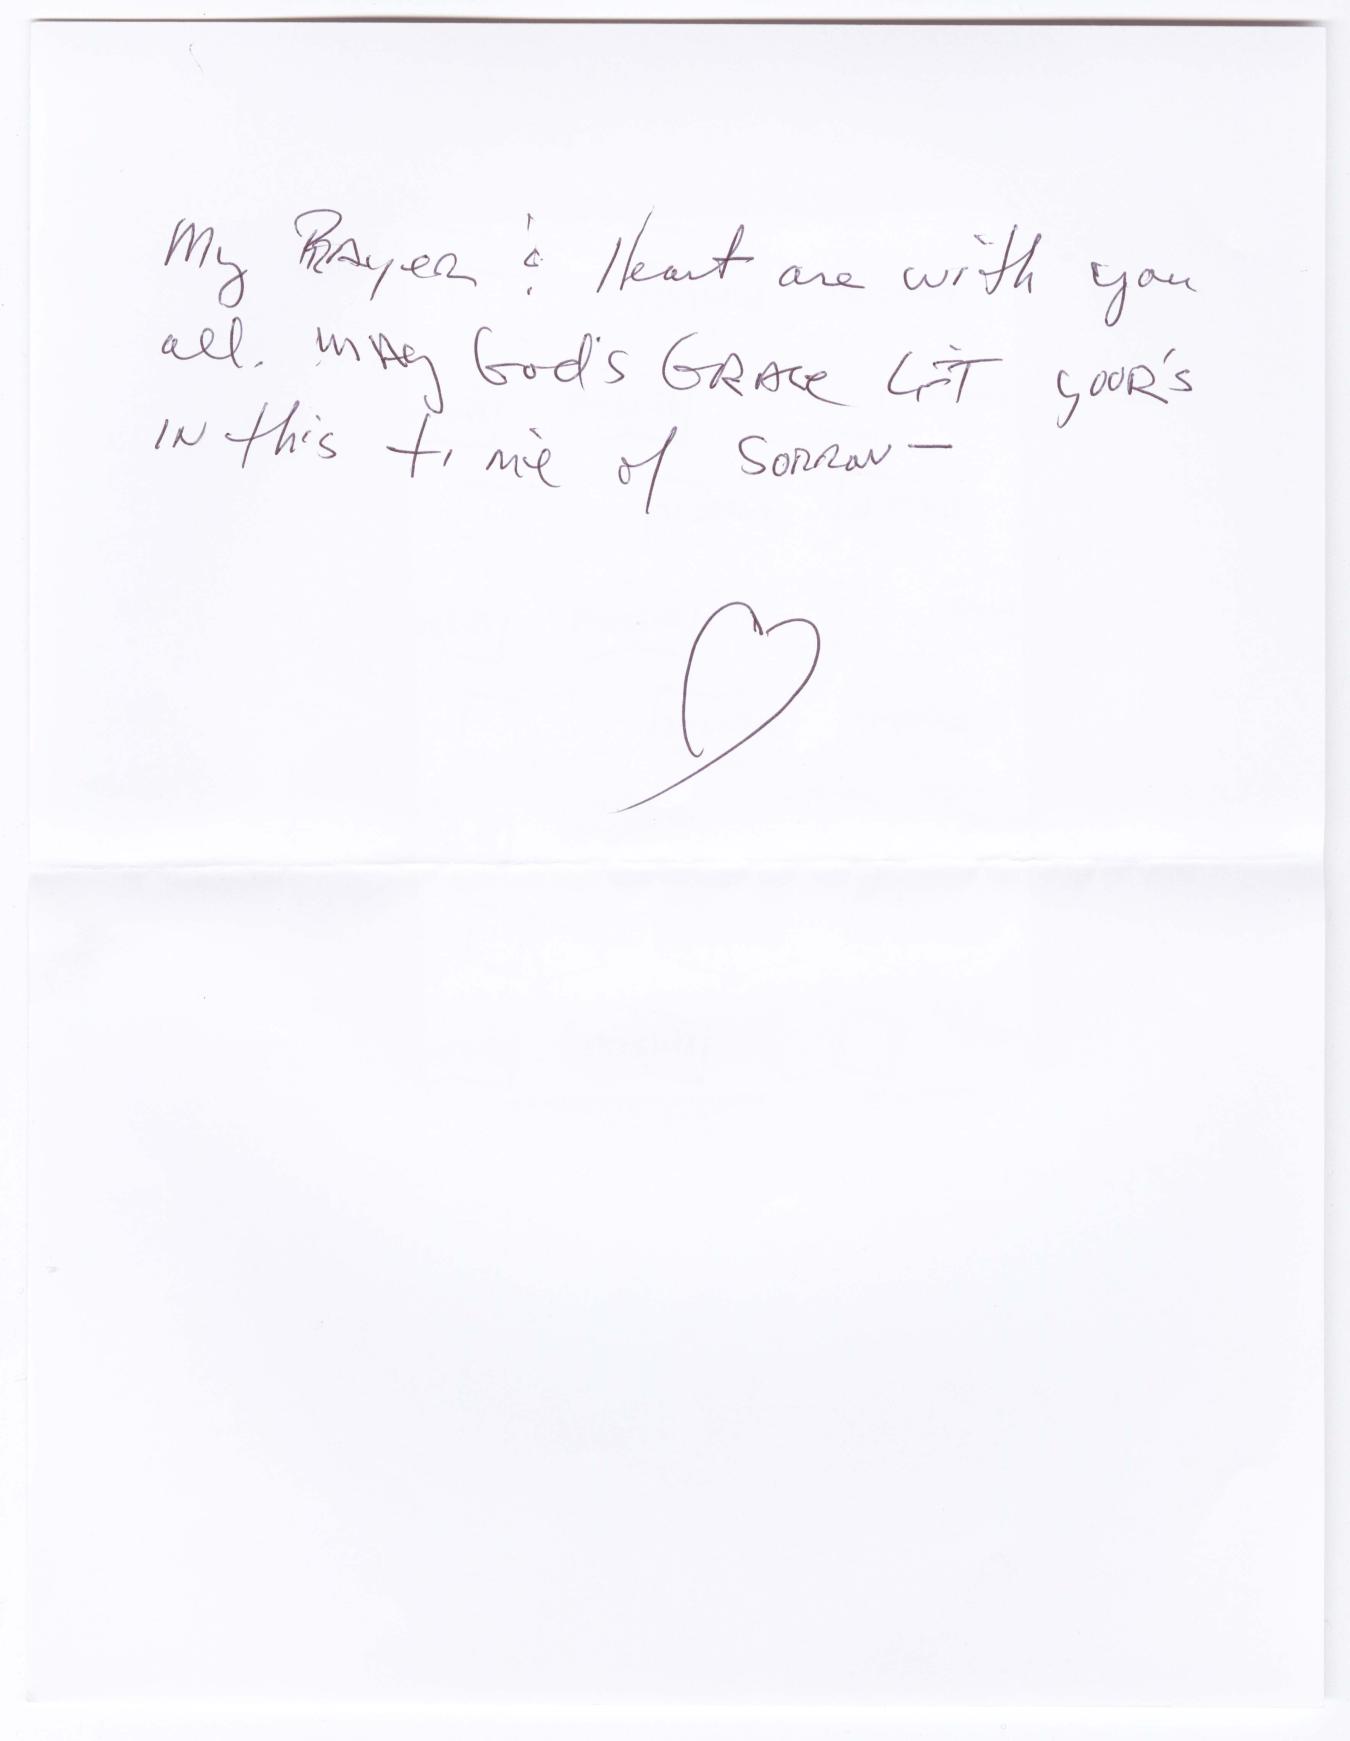 My Prayer & Heart are with you
all. May God's Grace Lift your's
in this time of Sorrow —